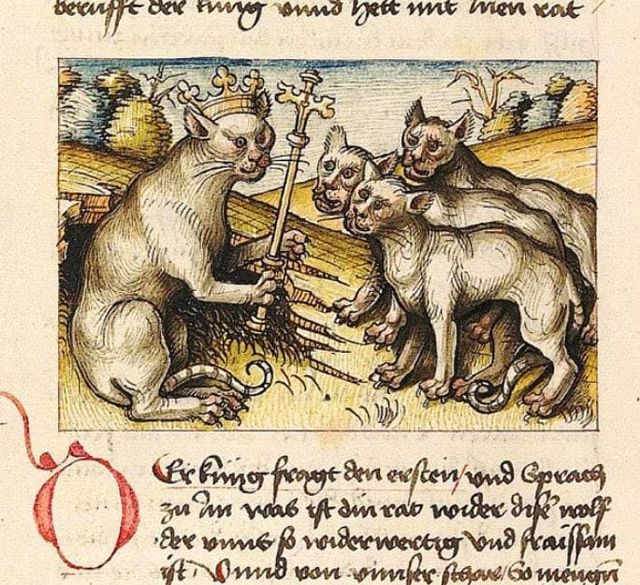 berufft der küng vnnd hett mit inen rat
DEr küng fragt den ersten / vnd sprach
zu Im was ist din rat wider dise wolf
der vnns so widerwertig vnd fraissam
ist / Vnnd von vnnser schar / so menigen